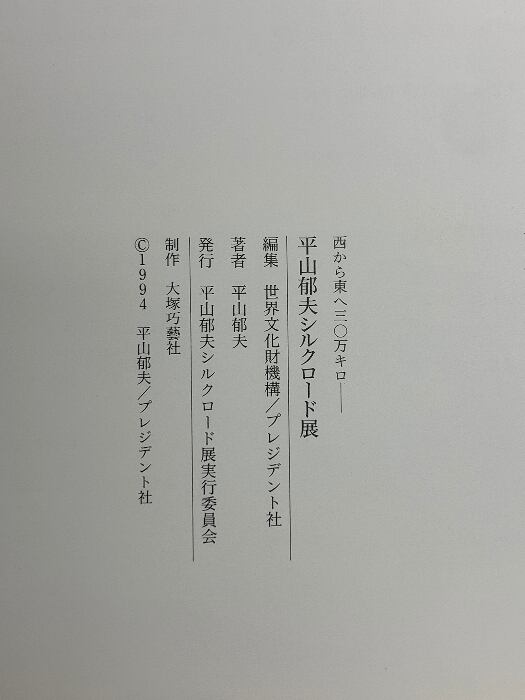 西から東へ三〇万キロ――
平山郁夫シルクロード展
編集　世界文化財機構／プレジデント社
著者　平山郁夫
発行　平山郁夫シルクロード展実行委員会
制作　大塚巧藝社
©1994　平山郁夫／プレジデント社